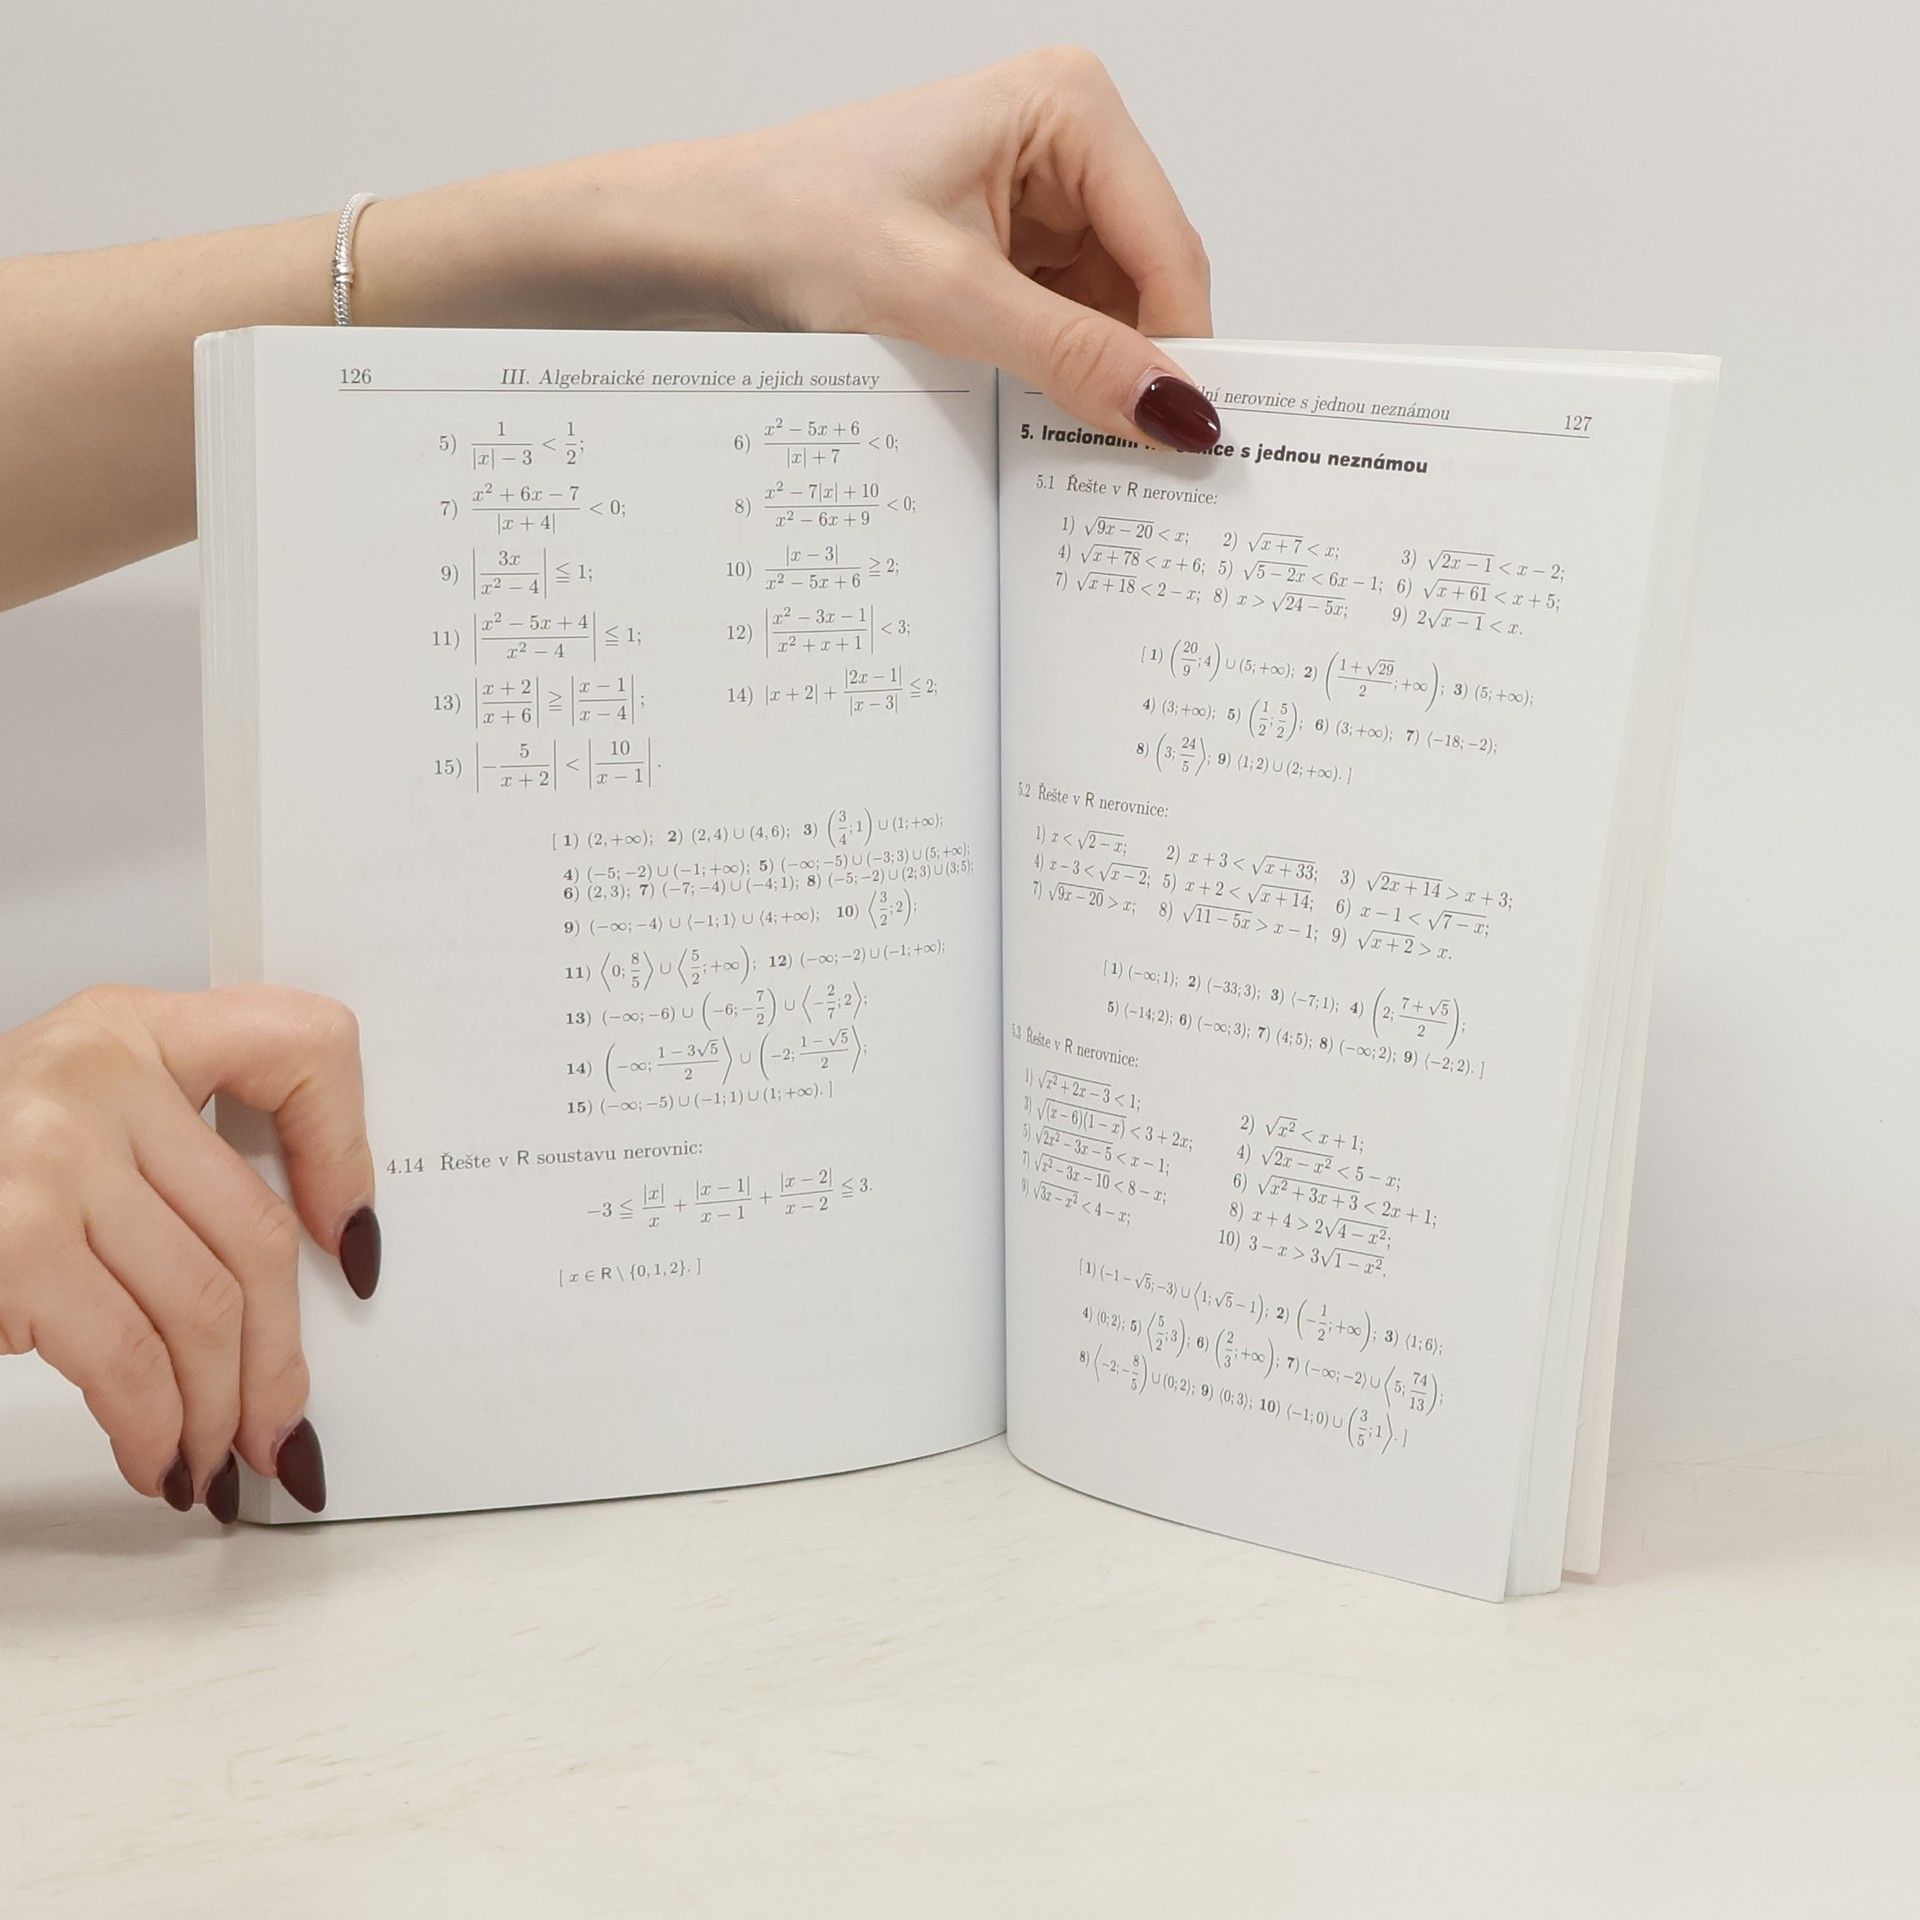 126 III. Algebraické nerovnice a jejich soustavy
5) 1/(|x| − 3) < 1/2; 6) (x² − 5x + 6)/(|x| + 7) < 0;
7) (x² + 6x − 7)/|x + 4| < 0; 8) (x² − 7|x| + 10)/(x² − 6x + 9) < 0;
9) |3x/(x² − 4)| ≦ 1; 10) |x − 3|/(x² − 5x + 6) ≧ 2;
11) |(x² − 5x + 4)/(x² − 4)| ≦ 1; 12) |(x² − 3x − 1)/(x² + x + 1)| < 3;
13) |(x + 2)/(x + 6)| ≧ |(x − 1)/(x − 4)|; 14) |x + 2| + |2x − 1|/|x − 3| ≦ 2;
15) |−5/(x + 2)| < |10/(x − 1)|.
[ 1) (2, +∞); 2) (2, 4) ∪ (4, 6); 3) (3/4; 1) ∪ (1; +∞);
4) (−5; −2) ∪ (−1; +∞); 5) (−∞; −5) ∪ (−3; 3) ∪ (5; +∞);
6) (2, 3); 7) (−7; −4) ∪ (−4; 1); 8) (−5; −2) ∪ (2; 3) ∪ (3; 5);
9) (−∞; −4⟩ ∪ ⟨−1; 1⟩ ∪ ⟨4; +∞); 10) ⟨3/2; 2);
11) ⟨0; 8/5⟩ ∪ ⟨5/2; +∞); 12) (−∞; −2) ∪ (−1; +∞);
13) (−∞; −6) ∪ (−6; −7/2⟩ ∪ ⟨−2/7; 2⟩;
14) (−∞; (1 − 3√5)/2⟩ ∪ (−2; (1 − √5)/2⟩;
15) (−∞; −5) ∪ (−1; 1) ∪ (1; +∞). ]
4.14 Řešte v R soustavu nerovnic:
−3 ≦ |x|/x + |x − 1|/(x − 1) + |x − 2|/(x − 2) ≦ 3.
[ x ∈ R \ {0, 1, 2}. ]
nerovnice s jednou neznámou 127
5. Iracionální s jednou neznámou
5.1 Řešte v R nerovnice:
1) √(9x − 20) < x; 2) √(x + 7) < x; 3) √(2x − 1) < x − 2;
4) √(x + 78) < x + 6; 5) √(5 − 2x) < 6x − 1; 6) √(x + 61) < x + 5;
7) √(x + 18) < 2 − x; 8) x > √(24 − 5x); 9) 2√(x − 1) < x.
[ 1) ⟨20/9; 4) ∪ (5; +∞); 2) ((1 + √29)/2; +∞); 3) (5; +∞);
4) (3; +∞); 5) (1/2; 5/2⟩; 6) (3; +∞); 7) ⟨−18; −2);
8) (3; 24/5⟩; 9) ⟨1; 2) ∪ (2; +∞). ]
5.2 Řešte v R nerovnice:
1) x < √(2 − x); 2) x + 3 < √(x + 33); 3) √(2x + 14) > x + 3;
4) x − 3 < √(x − 2); 5) x + 2 < √(x + 14); 6) x − 1 < √(7 − x);
7) √(9x − 20) > x; 8) √(11 − 5x) > x − 1; 9) √(x + 2) > x.
[ 1) (−∞; 1); 2) ⟨−33; 3); 3) ⟨−7; 1); 4) ⟨2; (7 + √5)/2);
5) ⟨−14; 2); 6) (−∞; 3); 7) (4; 5); 8) (−∞; 2); 9) ⟨−2; 2). ]
5.3 Řešte v R nerovnice:
1) √(x² + 2x − 3) < 1; 2) √x² < x + 1;
3) √((x − 6)(1 − x)) < 3 + 2x; 4) √(2x − x²) < 5 − x;
5) √(2x² − 3x − 5) < x − 1; 6) √(x² + 3x + 3) < 2x + 1;
7) √(x² − 3x − 10) < 8 − x; 8) x + 4 > 2√(4 − x²);
9) √(3x − x²) < 4 − x; 10) 3 − x > 3√(1 − x²).
[ 1) (−1 − √5; −3⟩ ∪ ⟨1; √5 − 1); 2) (−1/2; +∞); 3) ⟨1; 6⟩;
4) ⟨0; 2⟩; 5) ⟨5/2; 3); 6) (2/3; +∞); 7) (−∞; −2⟩ ∪ ⟨5; 74/13);
8) ⟨−2; −8/5) ∪ (0; 2⟩; 9) ⟨0; 3⟩; 10) ⟨−1; 0) ∪ (3/5; 1⟩. ]